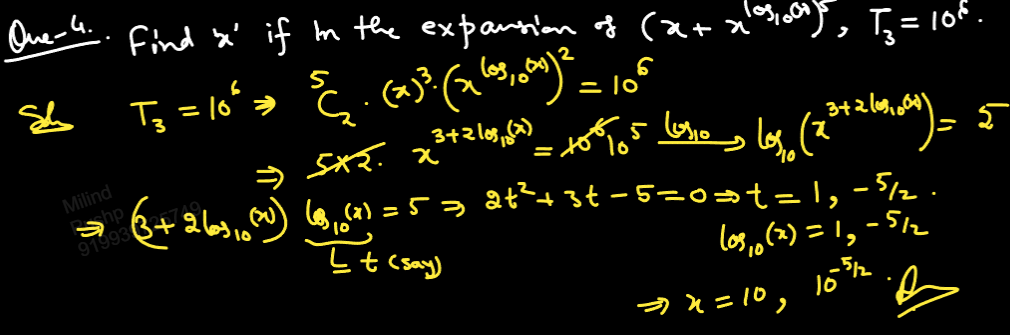 Que-4. Find 'x' if in the expansion of (x + x^(log₁₀(x)))⁵, T₃ = 10⁶.
Sol T₃ = 10⁶ ⇒ ⁵C₂ · (x)³ · (x^(log₁₀(x)))² = 10⁶
⇒ 5×2 · x^(3+2log₁₀(x)) = 10⁶ 10⁵ log₁₀ → log₁₀(x^(3+2log₁₀(x))) = 5
⇒ (3+2log₁₀(x)) log₁₀(x) = 5 ⇒ 2t² + 3t - 5 = 0 ⇒ t = 1, -5/2.
↳ t (say)
log₁₀(x) = 1, -5/2
⇒ x = 10, 10^(-5/2).
Milind